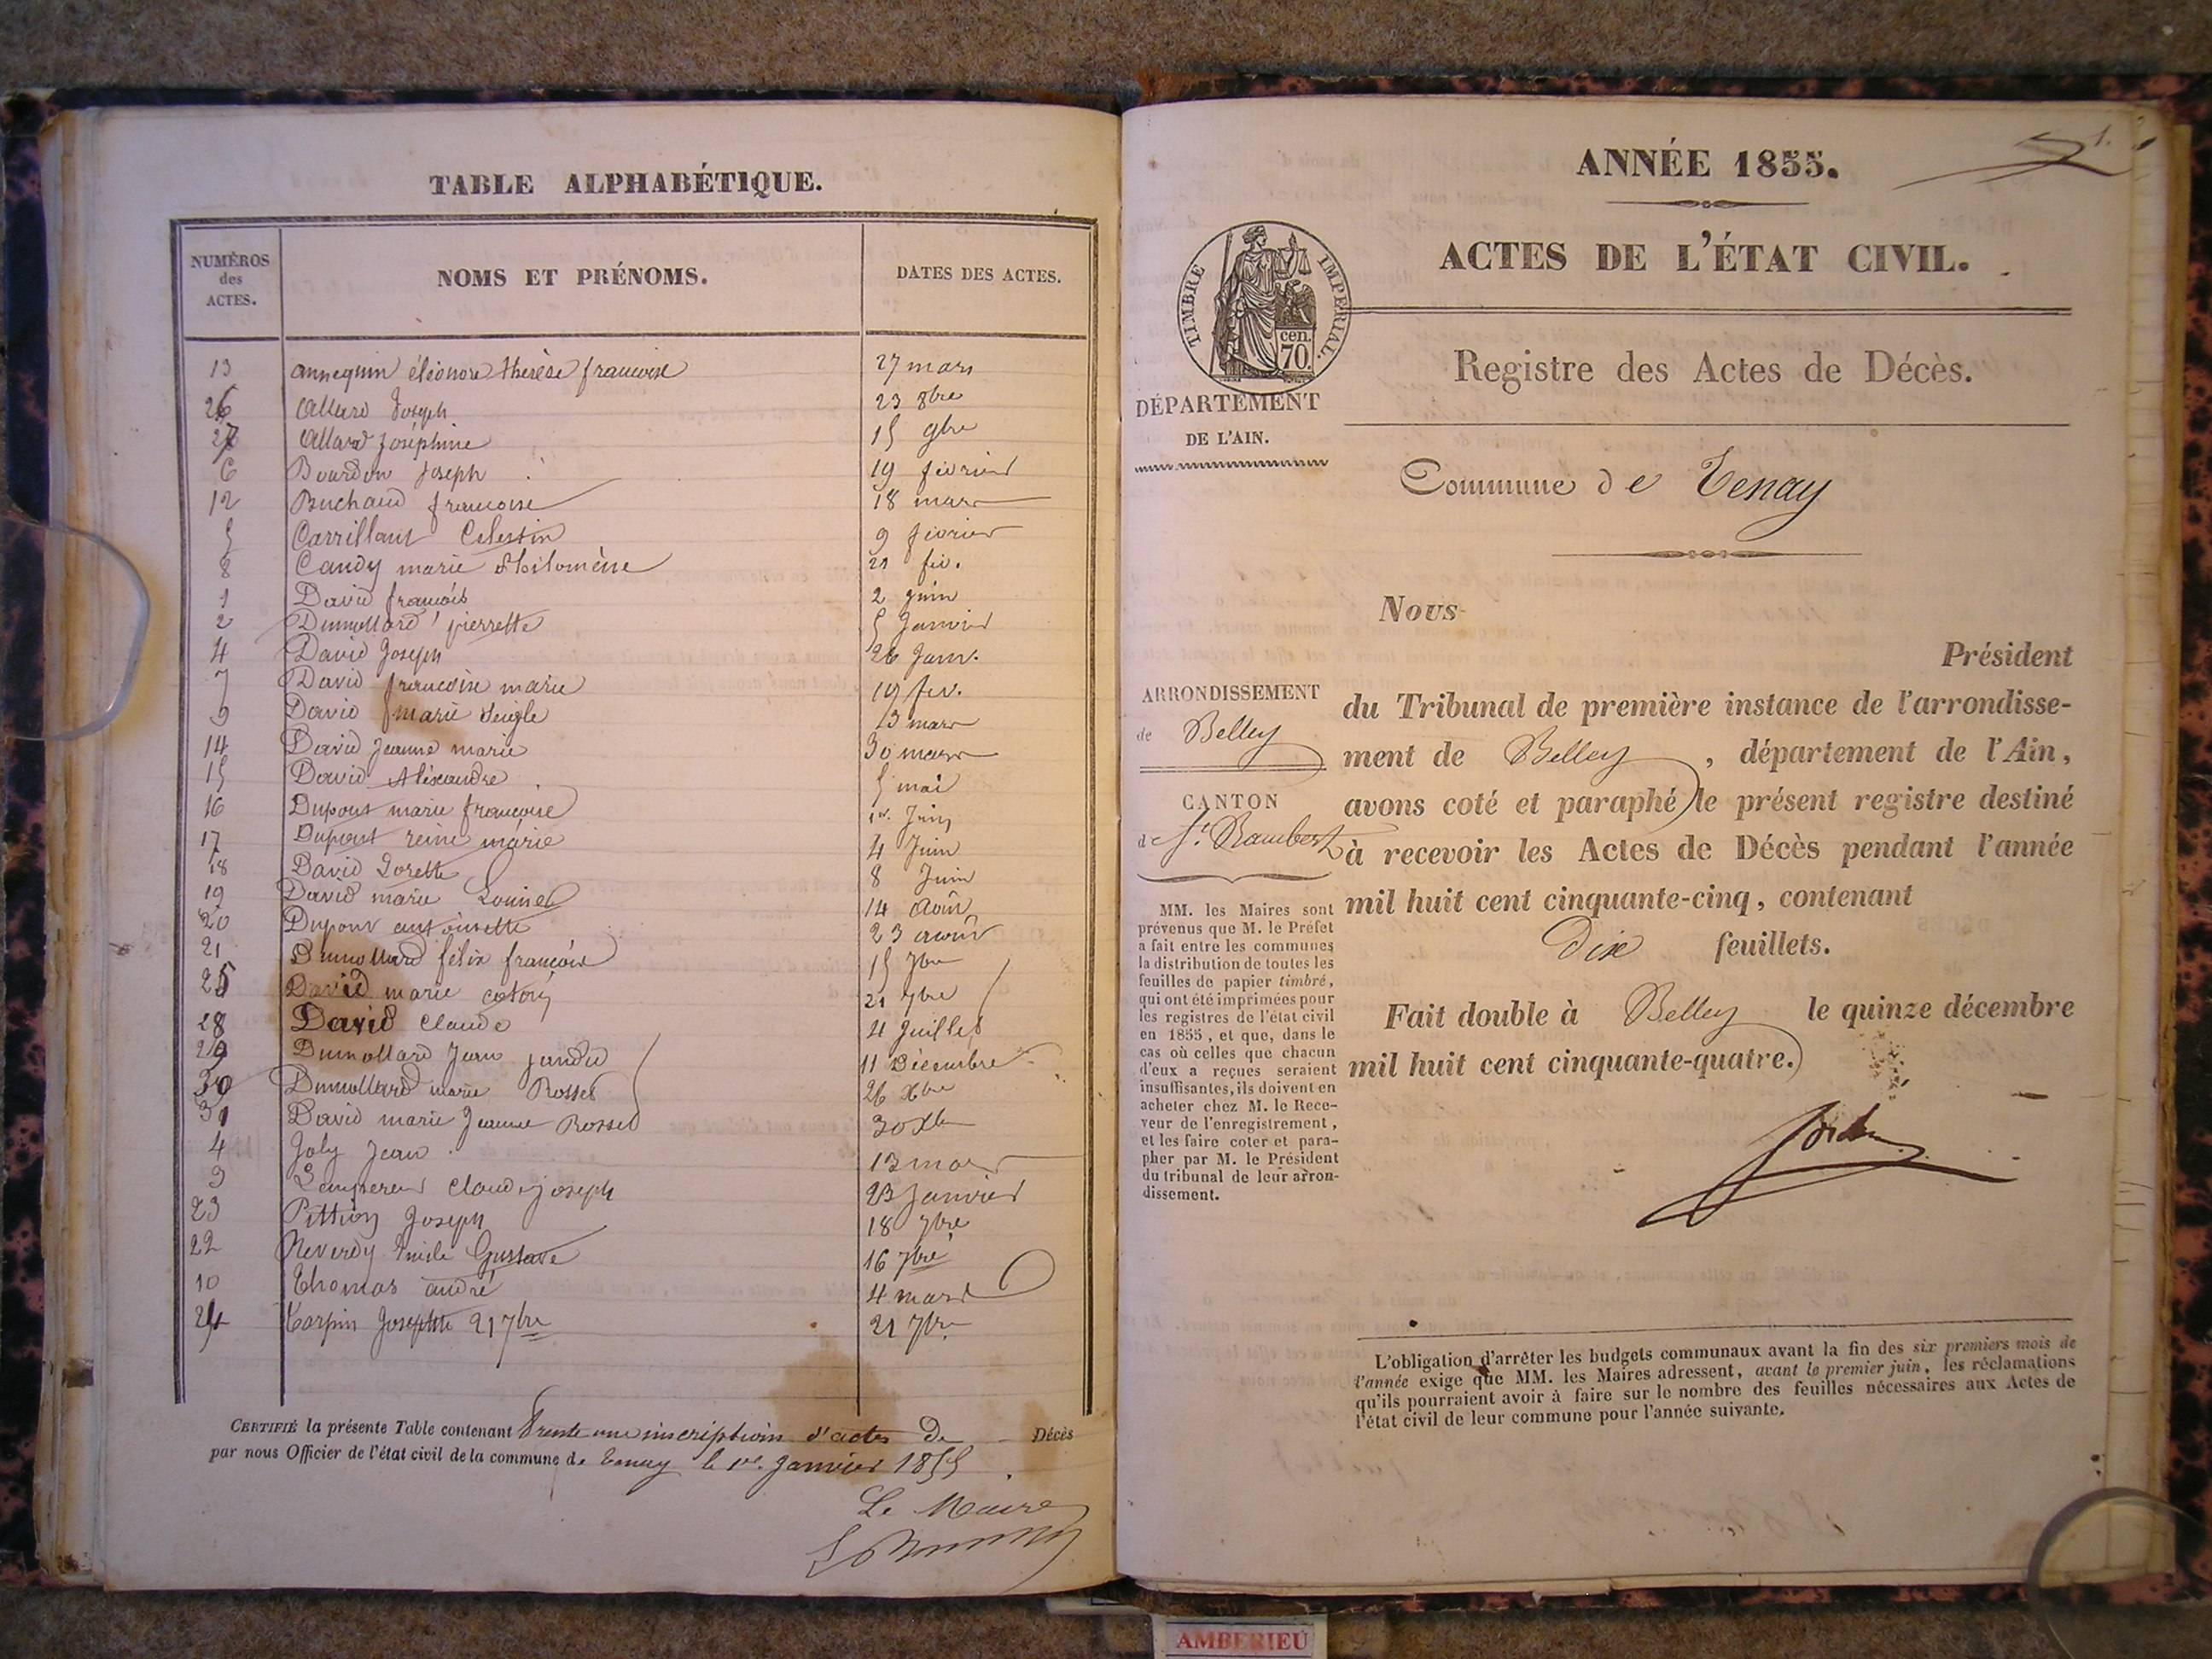 TABLE ALPHABÉTIQUE.
NUMÉROS des ACTES. NOMS ET PRÉNOMS. DATES DES ACTES.
13 annequin éléonore thérèse francoise 27 mars
26 allard Joseph 23 8bre
27 allard Joséphine 15 9bre
6 Bourdon Joseph 19 février
12 Buchard francoise 18 mars
5 Carrillant Celestin 9 février
8 Candy marie Philomène 21 fév.
1 David françois 2
2 Dumollard pierrette 5 Janvier
4 David Joseph 26 Janv.
7 David francoise marie 19 fev.
9 David marie 3 mars
14 David Jeanne marie 30 mars
15 David Aléxandre 5 mai
16 Dupont marie francoise 1er. Juin
17 Dupont reine marie 4 Juin
18 David Lorette 8 Juin
19 David marie Louise 14 Août
20 Dupont antoinette 23 aout
21 Dumollard félix françois 15 7bre
25 David marie 21 7bre
28 David Claude 4 Juillet
29 Dumollard Jean 11 Décembre
30 Dumollard marie Rosset 26 Xbre
31 David marie Jeanne Rosset 30 Xbre
4 Joly Jean 13 mars
3 Lempereur Claude joseph 23 Janvier
23 Pittion Joseph 18 7bre
22 Neverdy Emile Gustave 16 7bre
10 Thomas andré 4 mars
24 Tarpin Josephte 21 7bre 21 7bre
CERTIFIÉ la présente Table contenant Trente une inscriptions d'actes De Décès
par nous Officier de l'état civil de la commune de Tenay le 1er. Janvier 1855
Le Maire
ANNÉE 1855.
1.
ACTES DE L'ÉTAT CIVIL.
TIMBRE IMPERIAL.
cen.
70.
DÉPARTEMENT
DE L'AIN.
Registre des Actes de Décès.
Commune de Tenay
Nous
Président
du Tribunal de première instance de l'arrondisse-
ment de Belley, département de l'Ain,
avons coté et paraphé le présent registre destiné
à recevoir les Actes de Décès pendant l'année
mil huit cent cinquante-cinq, contenant
Dix feuillets.
Fait double à Belley le quinze décembre
mil huit cent cinquante-quatre.
ARRONDISSEMENT
de Belley
CANTON
de St. Rambert
MM. les Maires sont
prévenus que M. le Préfet
a fait entre les communes
la distribution de toutes les
feuilles de papier timbré,
qui ont été imprimées pour
les registres de l'état civil
en 1855, et que, dans le
cas où celles que chacun
d'eux a reçues seraient
insuffisantes, ils doivent en
acheter chez M. le Rece-
veur de l'enregistrement,
et les faire coter et para-
pher par M. le Président
du tribunal de leur arron-
dissement.
L'obligation d'arrêter les budgets communaux avant la fin des six premiers mois de
l'année exige que MM. les Maires adressent, avant le premier juin, les réclamations
qu'ils pourraient avoir à faire sur le nombre des feuilles nécessaires aux Actes de
l'état civil de leur commune pour l'année suivante.
AMBERIEU